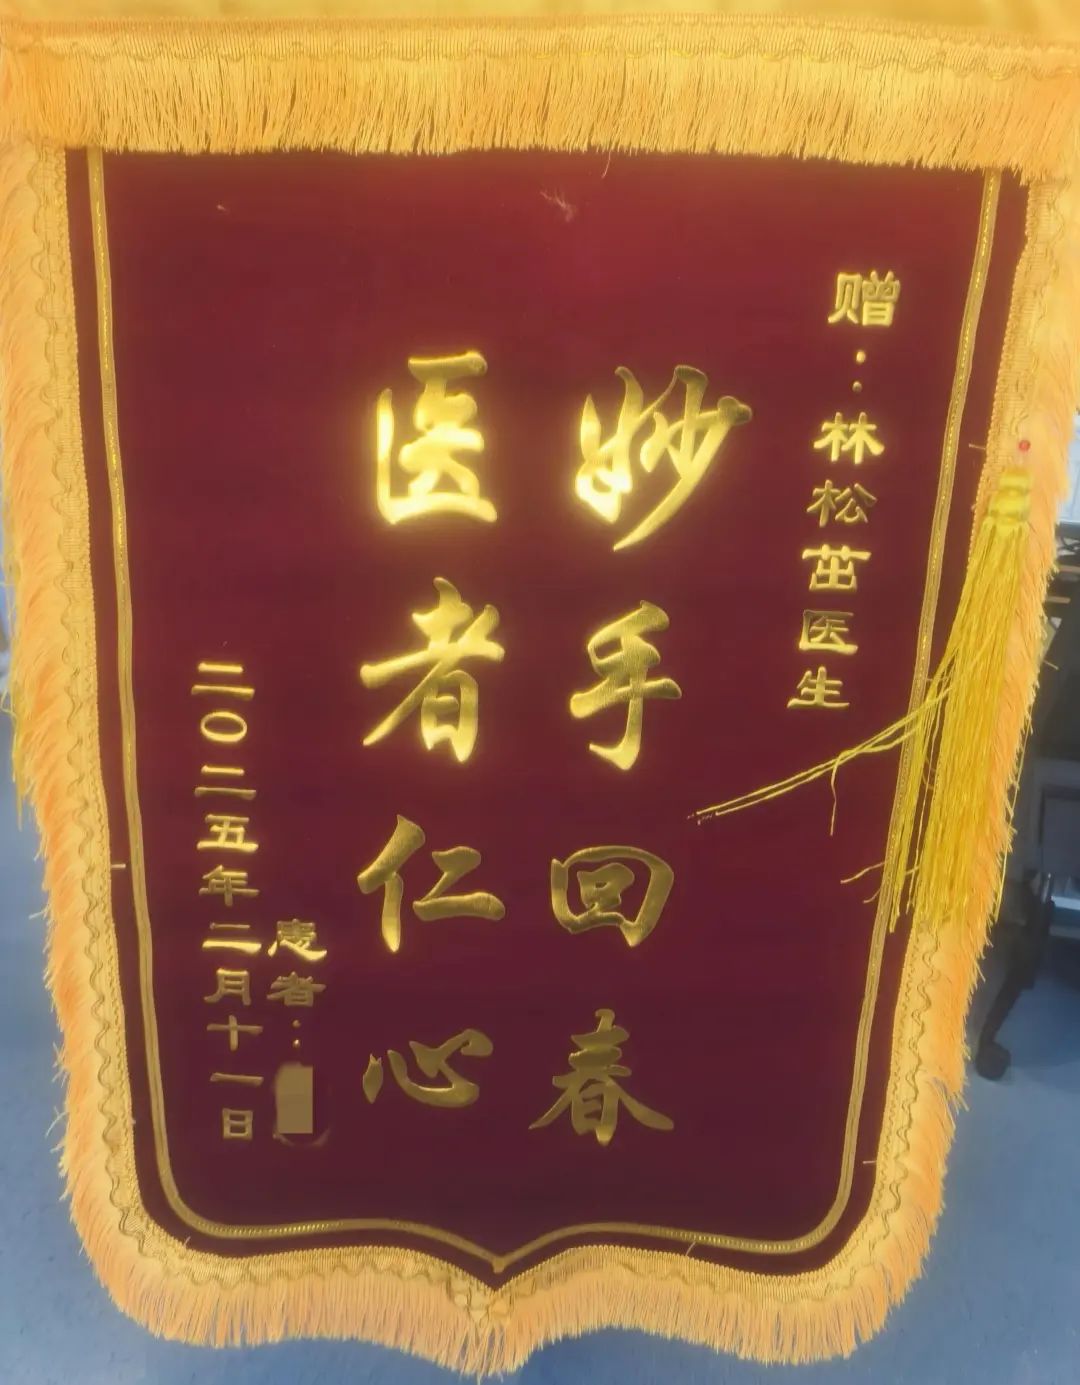 赠：林松茁医生
妙手回春
医者仁心
患者：
二〇二五年二月十一日